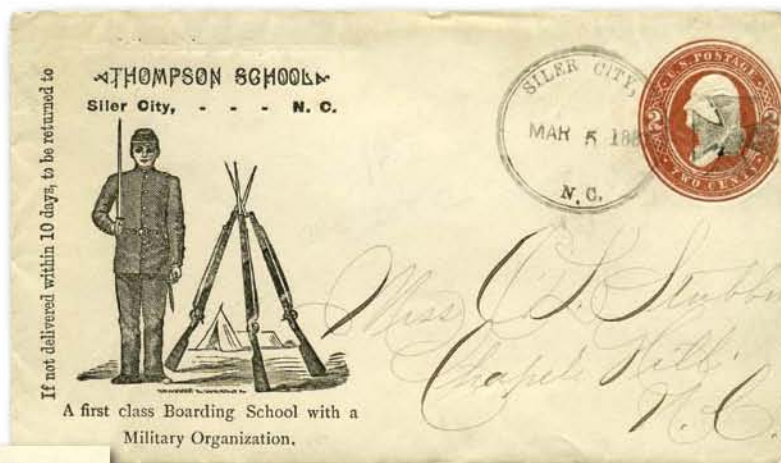 If not delivered within 10 days, to be returned to
THOMPSON SCHOOL
Siler City, - - - N. C.
A first class Boarding School with a
Military Organization.
SILER CITY,
MAR 5 188
N. C.
U.S. POSTAGE
2 2
TWO CENTS
Miss
Chapel Hill
N.C.